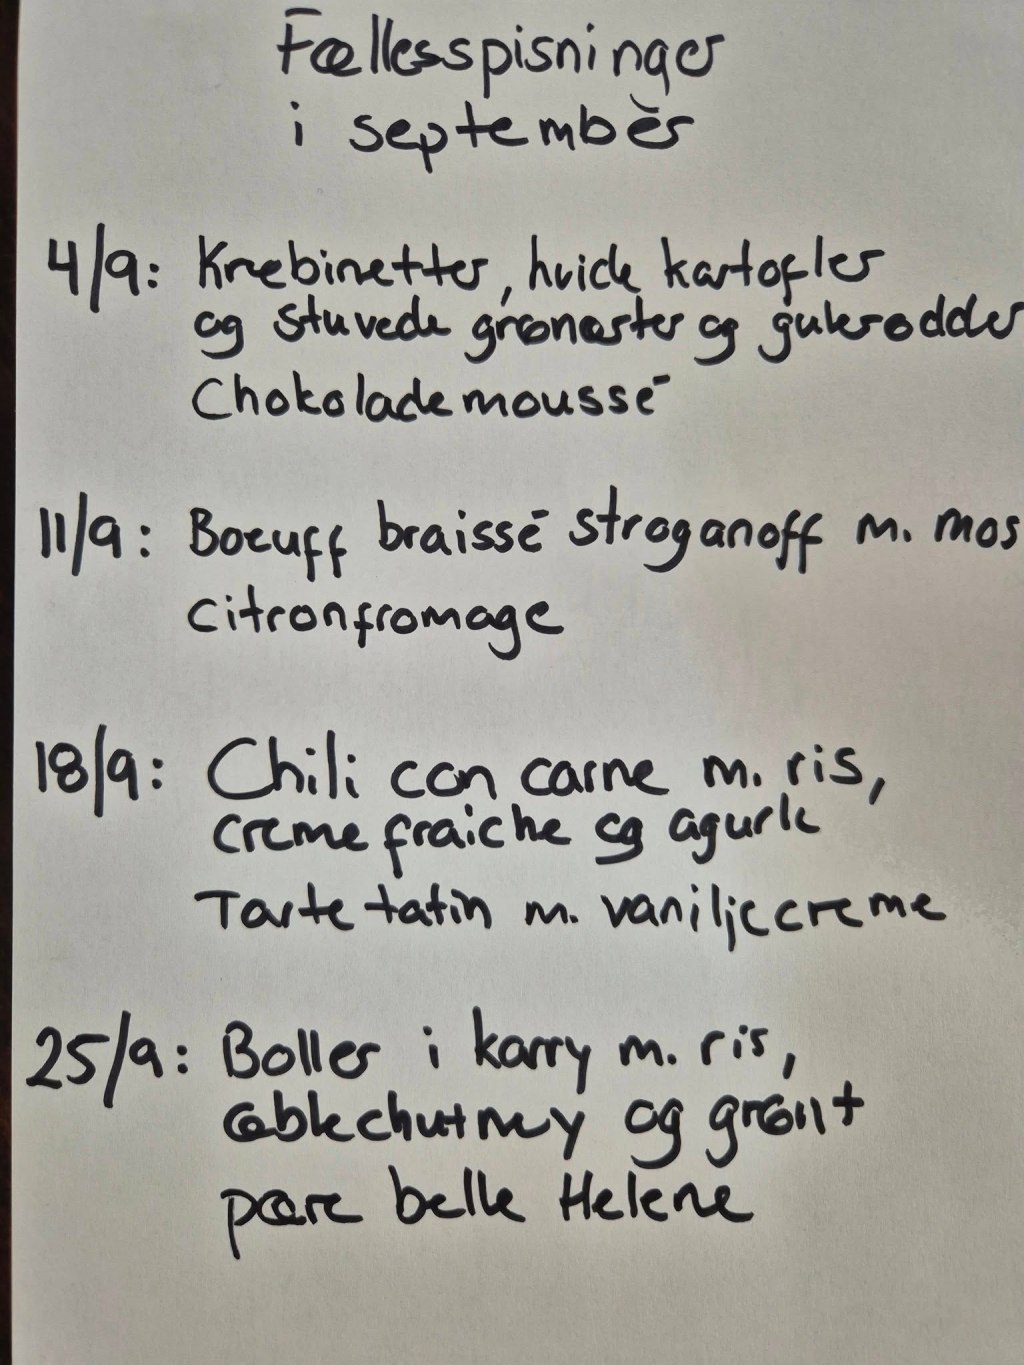 Fællesspisninger
i september
4/9: Krebinetter, hvide kartofler
og stuvede grønærter og gulerødder
Chokolademoussé
11/9: Boeuff braissé stroganoff m. mos
citronfromage
18/9: Chili con carne m. ris,
creme fraiche og agurk
Tarte tatin m. vaniljecreme
25/9: Boller i karry m. ris,
æblechutney og grønt
pære belle Helene